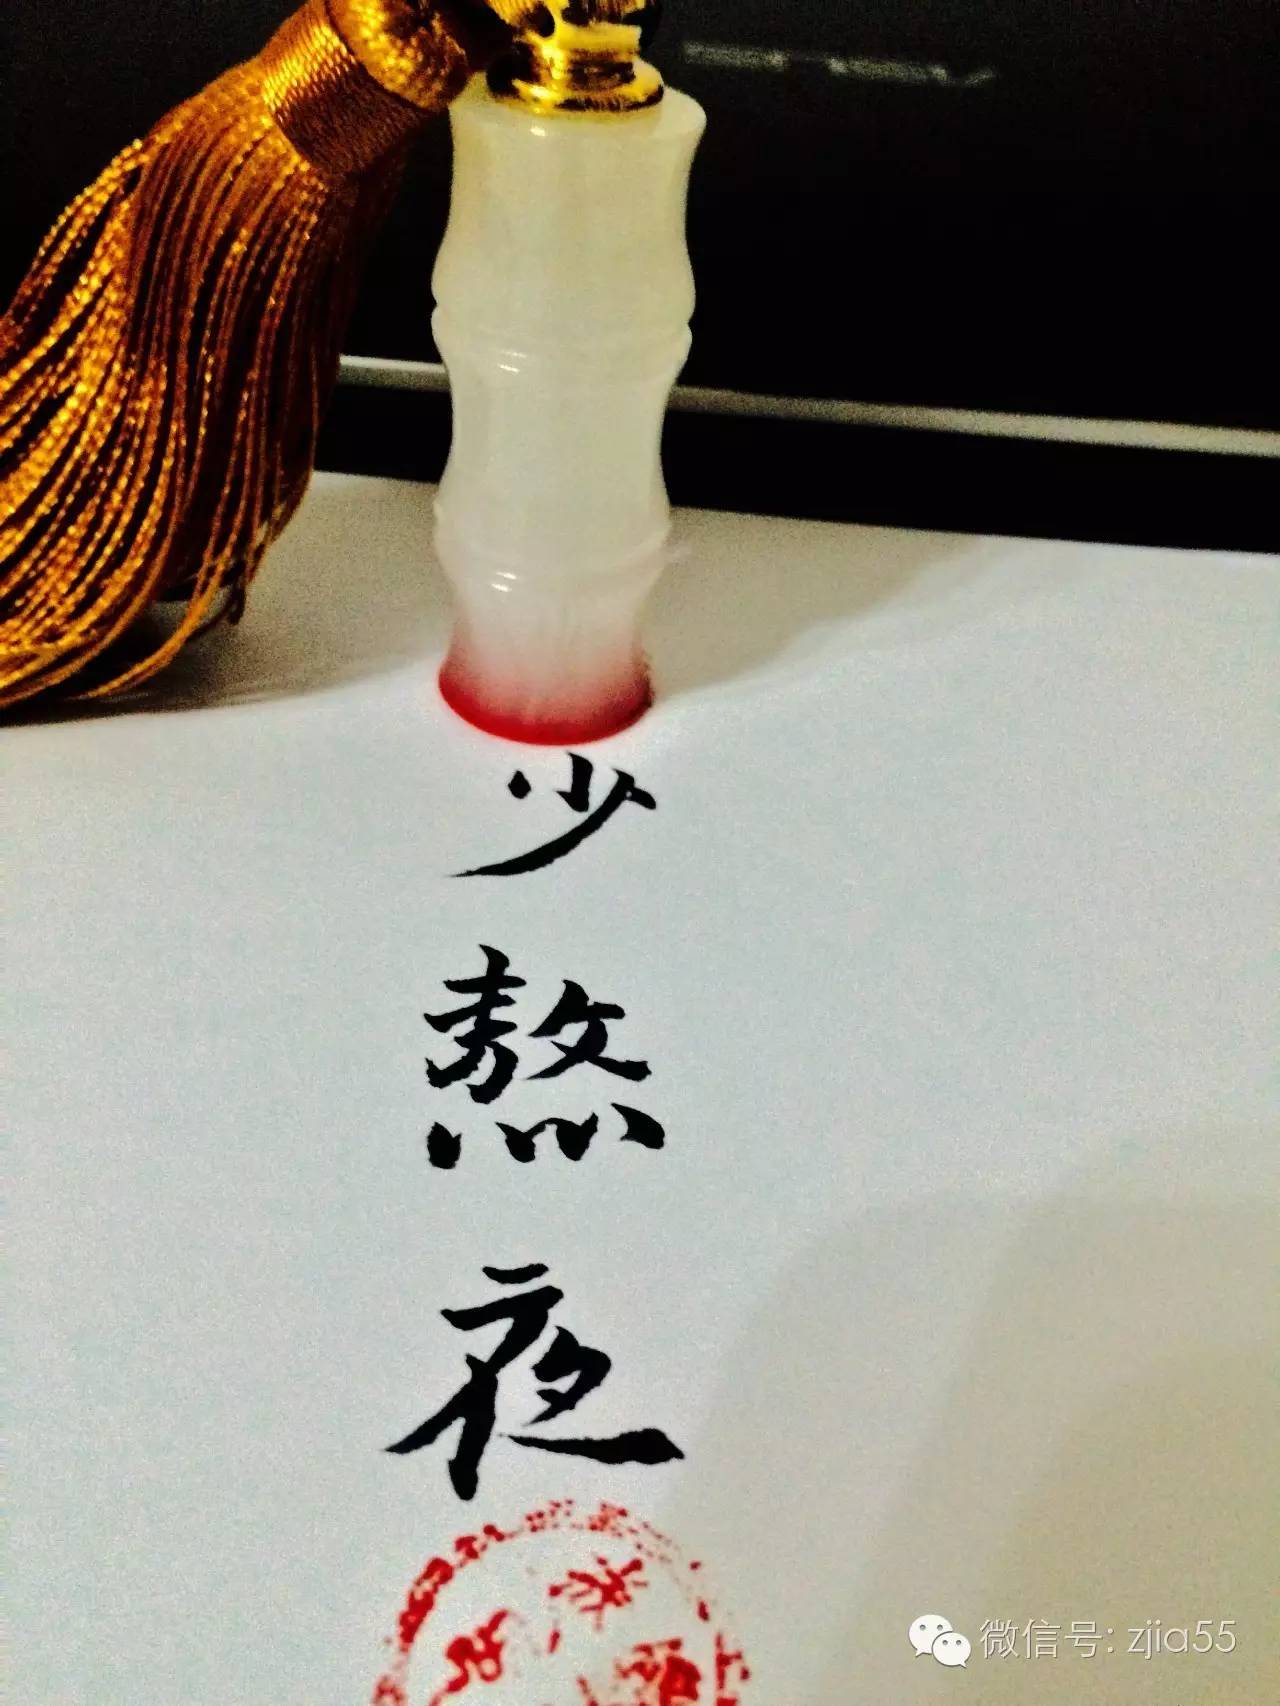 少熬夜
微信号: zjia55